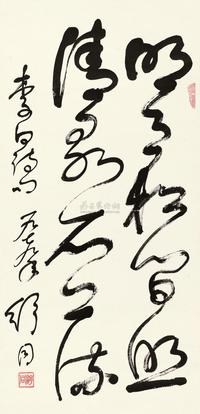 明月松間照
清泉石上流
李白詩句
舒同